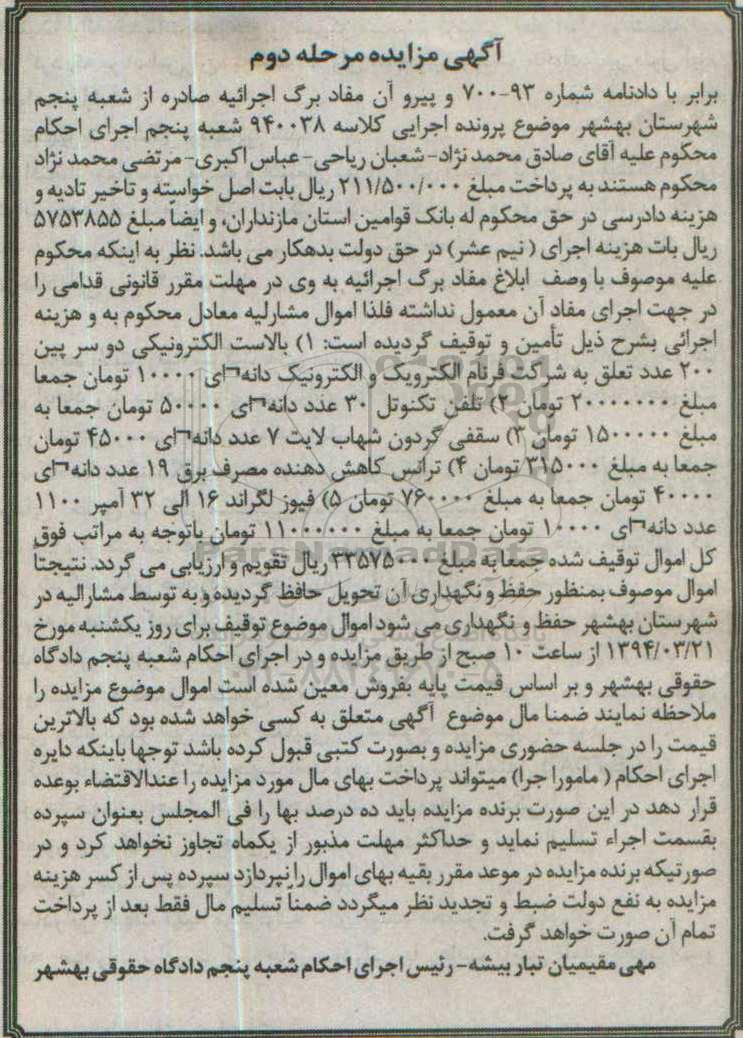 آگهی مزایده مرحله دوم
برابر با دادنامه شماره ۹۳-۷۰۰ و پیرو آن مفاد برگ اجرائیه صادره از شعبه پنجم
شهرستان بهشهر موضوع پرونده اجرایی کلاسه ۹۴۰۰۳۸ شعبه پنجم اجرای احکام
محکوم علیه آقای صادق محمد نژاد- شعبان ریاحی- عباس اکبری- مرتضی محمد نژاد
محکوم هستند به پرداخت مبلغ ۲۱۱/۵۰۰/۰۰۰ ریال بابت اصل خواسته و تاخیر تادیه و
هزینه دادرسی در حق محکوم له بانک قوامین استان مازنداران، و ایضاً مبلغ ۵۷۵۳۸۵۵
ریال بات هزینه اجرای ( نیم عشر) در حق دولت بدهکار می باشد. نظر به اینکه محکوم
علیه موصوف با وصف ابلاغ مفاد برگ اجرائیه به وی در مهلت مقرر قانونی قدامی را
در جهت اجرای مفاد آن معمول نداشته فلذا اموال مشارلیه معادل محکوم به و هزینه
اجرائی بشرح ذیل تأمین و توقیف گردیده است: ۱) بالاست الکترونیکی دو سر پین
۲۰۰ عدد تعلق به شرکت فرنام الکترویک و الکترونیک دانه ای ۱۰۰۰۰ تومان جمعا
مبلغ ۲۰۰۰۰۰۰۰ تومان ۲) تلفن تکنوتل ۳۰ عدد دانه ای ۵۰۰۰۰ تومان جمعا به
مبلغ ۱۵۰۰۰۰۰ تومان ۳) سقفی گردون شهاب لایت ۷ عدد دانه ای ۴۵۰۰۰ تومان
جمعا به مبلغ ۳۱۵۰۰۰ تومان ۴) ترانس کاهش دهنده مصرف برق ۱۹ عدد دانه ای
۴۰۰۰۰ تومان جمعا به مبلغ ۷۶۰۰۰۰ تومان ۵) فیوز لگراند ۱۶ الی ۳۲ آمپر ۱۱۰۰
عدد دانه ای ۱۰۰۰۰ تومان جمعا به مبلغ ۱۱۰۰۰۰۰۰ تومان باتوجه به مراتب فوق
کل اموال توقیف شده جمعا به مبلغ ۳۳۵۷۵۰۰۰ ریال تقویم و ارزیابی می گردد. نتیجتا
اموال موصوف بمنظور حفظ و نگهداری آن تحویل حافظ گردیده و به توسط مشارالیه در
شهرستان بهشهر حفظ و نگهداری می شود اموال موضوع توقیف برای روز یکشنبه مورخ
۱۳۹۴/۰۳/۲۱ از ساعت ۱۰ صبح از طریق مزایده و در اجرای احکام شعبه پنجم دادگاه
حقوقی بهشهر و بر اساس قیمت پایه بفروش معین شده است اموال موضوع مزایده را
ملاحظه نمایند ضمنا مال موضوع آگهی متعلق به کسی خواهد شده بود که بالاترین
قیمت را در جلسه حضوری مزایده و بصورت کتبی قبول کرده باشد توجها باینکه دایره
اجرای احکام ( مامورا جرا) میتواند پرداخت بهای مال مورد مزایده را عندالاقتضاء بوعده
قرار دهد در این صورت برنده مزایده باید ده درصد بها را فی المجلس بعنوان سپرده
بقسمت اجراء تسلیم نماید و حداکثر مهلت مذبور از یکماه تجاوز نخواهد کرد و در
صورتیکه برنده مزایده در موعد مقرر بقیه بهای اموال را نپردازد سپرده پس از کسر هزینه
مزایده به نفع دولت ضبط و تجدید نظر میگردد ضمناً تسلیم مال فقط بعد از پرداخت
تمام آن صورت خواهد گرفت.
مهی مقیمیان تبار بیشه- رئیس اجرای احکام شعبه پنجم دادگاه حقوقی بهشهر
ParsNamadData